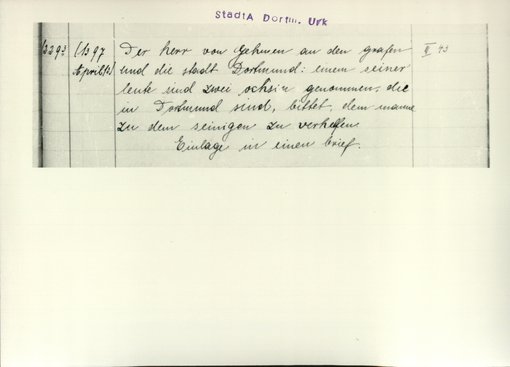 StadtA Dortm. Urk
1397 Der herr von Gehmen an den grafen II 43
April 12) und die stadt Dortmund: einem seiner
leute sind zwei ochsen genommen, die
in Dortmund sind, bittet, dem manne
zu dem seinigen zu verhelfen.
Einlage in einen brief.